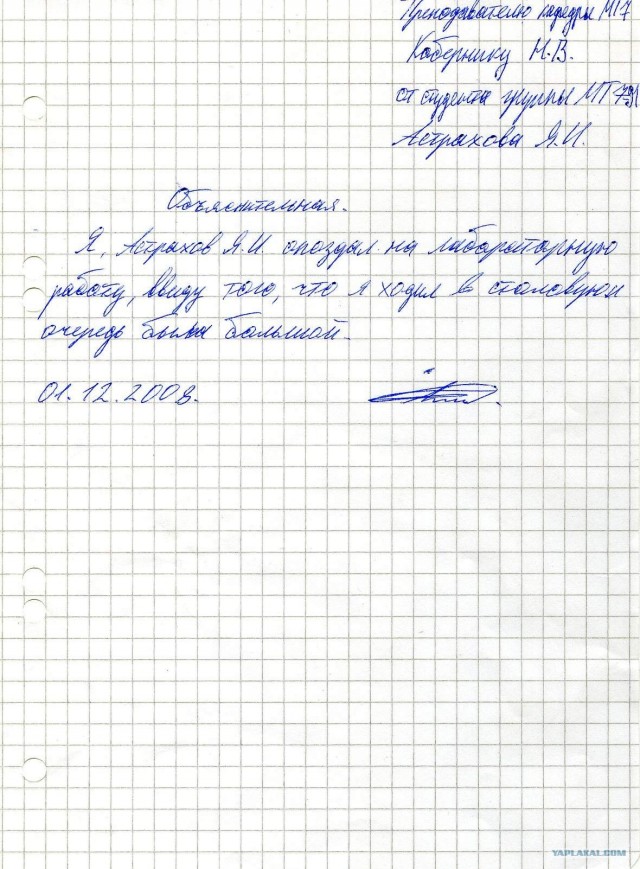 Преподавателю кафедры МТ7
Кобернику Н.В.
от студента группы МТ7-
Астрахова Я.И.
Объяснительная.
Я, Астрахов Я.И. опоздал на лабораторную
работу, ввиду того, что я ходил в столовую и
очередь была большой.
01.12.2008.
YAPLAKAL.COM